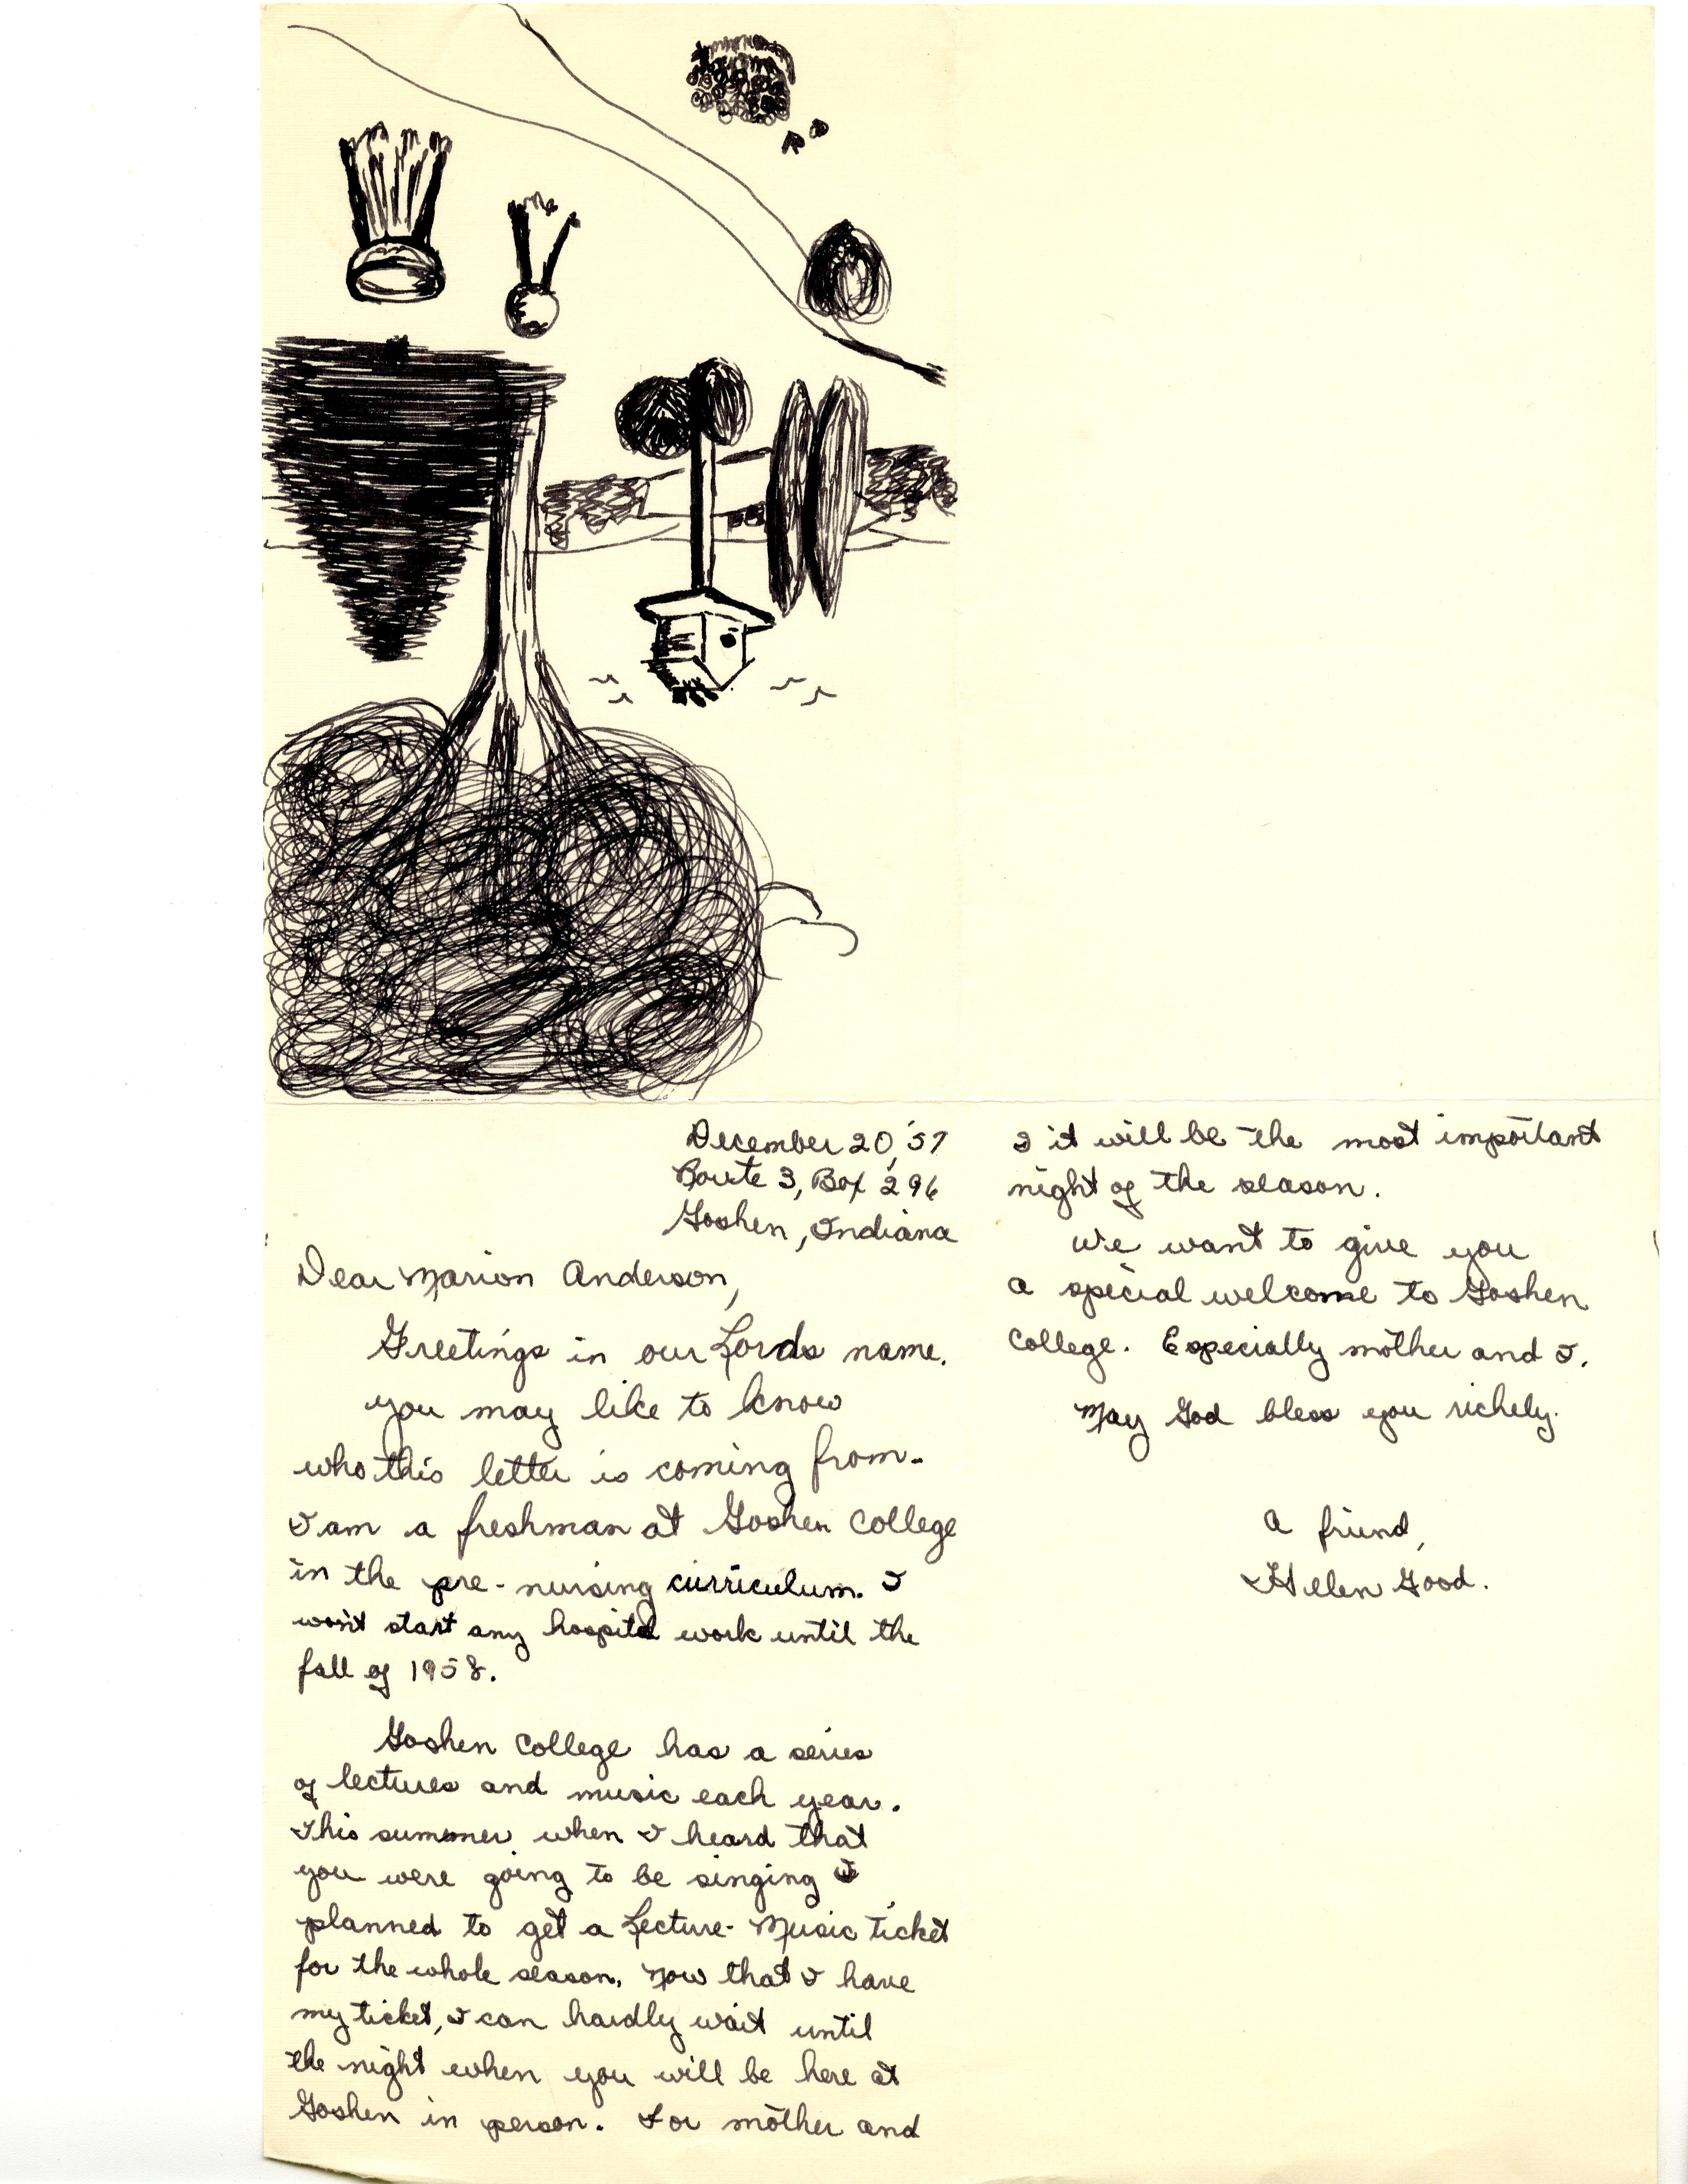 December 20, '57
Route 3, Box 296
Goshen, Indiana
Dear Marion Anderson,
Greetings in our Lords name.
you may like to know
who this letter is coming from.
I am a freshman at Goshen College
in the pre-nursing curriculum. I
won't start any hospital work until the
fall of 1958.
Goshen College has a series
of lectures and music each year.
This summer when I heard that
you were going to be singing I
planned to get a Lecture-Music ticket
for the whole season. Now that I have
my ticket, I can hardly wait until
the night when you will be here at
Goshen in person. For mother and
I it will be the most important
night of the season.
We want to give you
a special welcome to Goshen
College. Especially mother and I.
May God bless you richely.
A friend,
Helen Good.